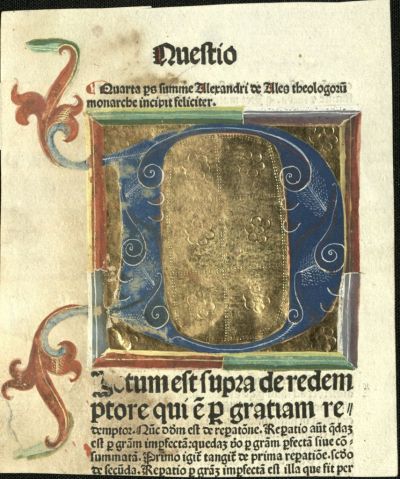 Questio
Quarta ps summe Alexandri de Ales theologoꝝ
monarche incipit feliciter.
D
Ictum est supra de redem
ptore qui ē ꝑ gratiam re⸗
demptor. Nūc dōm est de repatōne. Repatio aūt q̄daȝ
est ꝑ grām impfectā: quedaȝ v̄o ꝑ grām ꝑfectā siue cō⸗
summatā. Primo igit̄ tangit̄ de prima repatiōe. scd̄o
de secūda. Repatio ꝑ grāȝ impfectā est illa que fit per